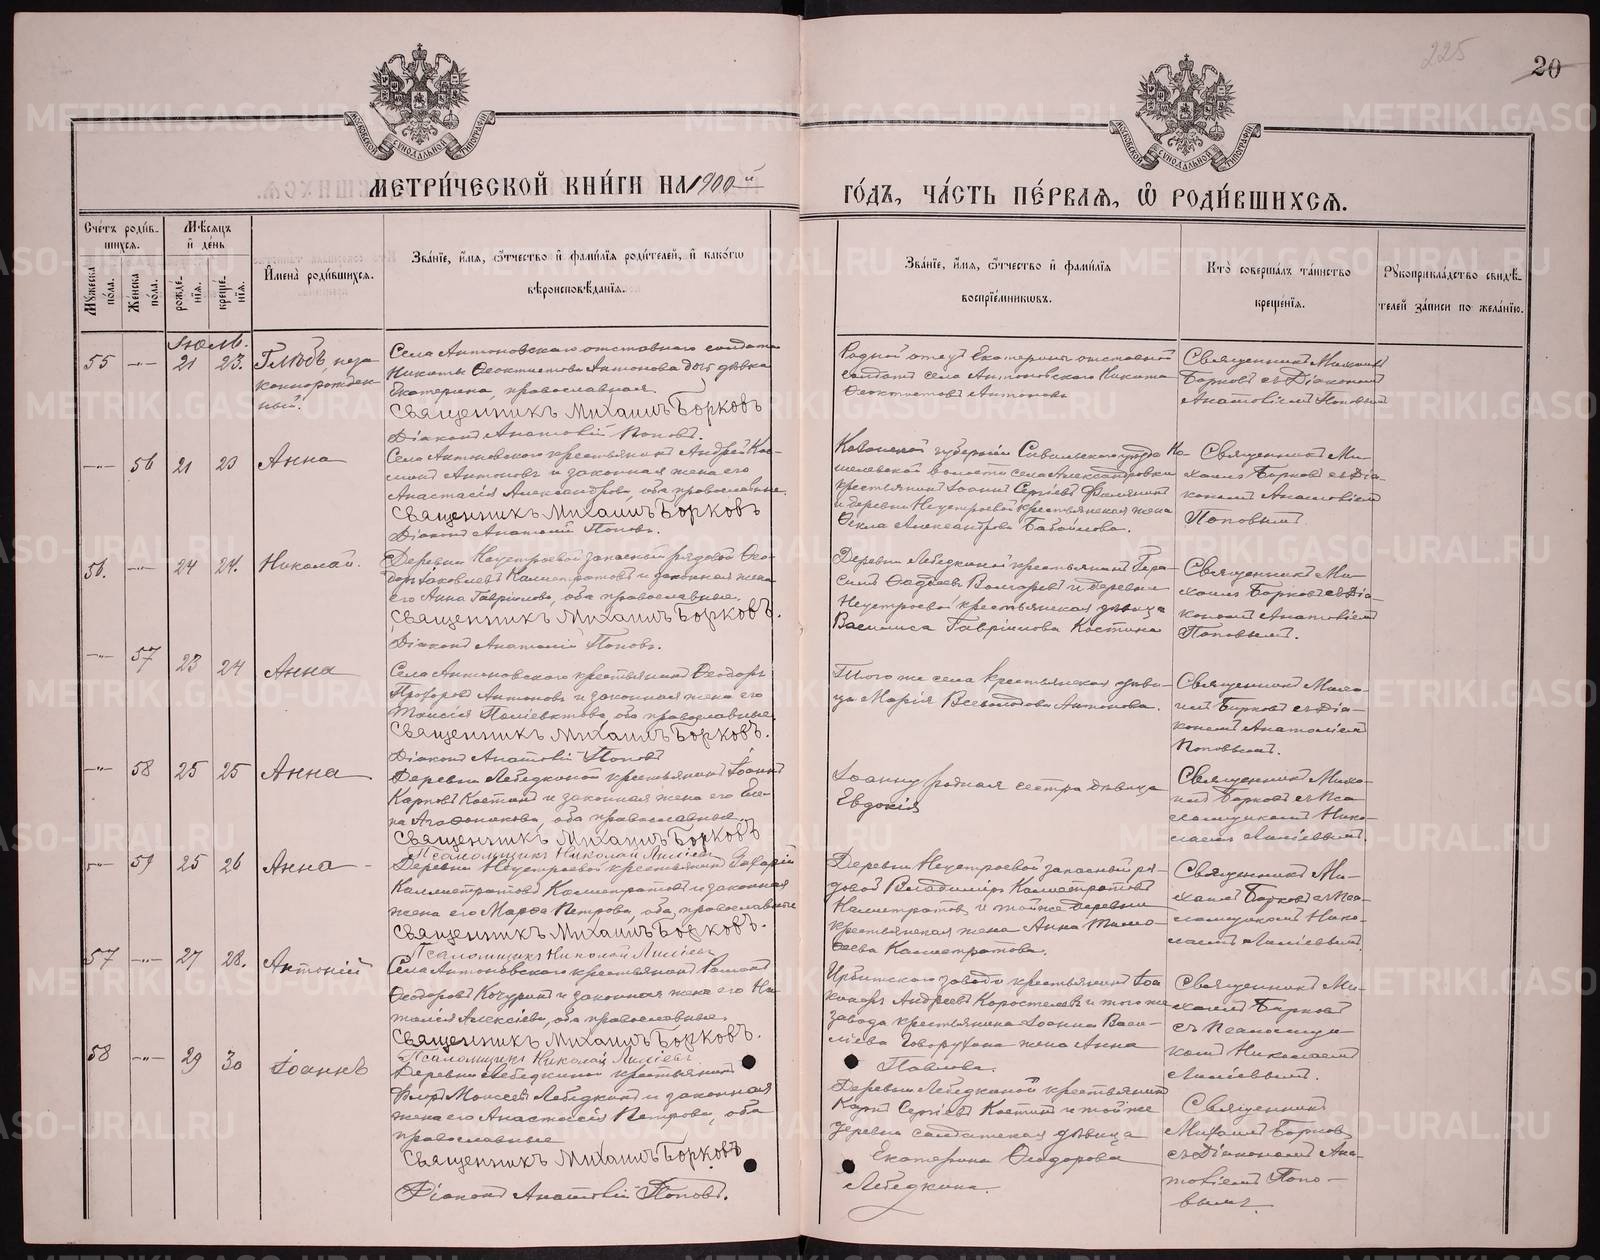 225
20
МЕТРИ́ЧЕСКОЙ КНИ́ГИ НА 1900й
ГО́ДЪ, ЧА́СТЬ ПЕ́РВАЯ, Ѡ РОДИ́ВШИХСЯ.
Сче́тъ роди́в-
шихся.
Му́жеска по́ла.
Же́нска по́ла.
Мѣ́сяцъ
и҆ де́нь
рожде́-
нїя.
креще́-
нїя.
И҆мена̀ роди́вшихся.
Зва́нїе, и҆́мя, ѻ҆́тчество и҆ фами́лїя роди́телей, и҆ како́гѡ
вѣроисповѣ́данїя.
Зва́нїе, и҆́мя, ѻ҆́тчество и҆ фами́лїя
воспрїе́мникѡвъ.
Кто̀ соверша́лъ та́инство
креще́нїя.
Рꙋкоприкла́дство свидѣ́-
телей за́писи по жела́нїю.
Іюль.
55 -„- 21 23. Глѣбъ, неза-
коннорожден-
ный.
Села Антоновскаго отставнаго солдата
Никиты Ѳеоктистова Антонова дочь дѣвка
Екатерина, православная.
Священникъ Михаилъ Борковъ
Діаконъ Анатолій Поповъ.
Родной отецъ Екатерины отставной
солдатъ села Антоновскаго Никита
Ѳеоктистовъ Антоновъ
Священникъ Михаилъ
Борковъ съ Діакономъ
Анатоліемъ Поповымъ
-„- 56 21 23 Анна
Села Антоновскаго крестьянинъ Андрей Кос-
минъ Антоновъ и законная жена его
Анастасія Александрова, оба православные.
Священникъ Михаилъ Борковъ
Діаконъ Анатолій Поповъ.
Казанской губерніи уѣзда
волости села Александровки
крестьянинъ Іоаннъ Сергіевъ
и деревни Неустроевой крестьянская жена
Ѳекла Александрова
Священникъ Ми-
хаилъ Борковъ съ Діа-
кономъ Анатоліемъ
Поповымъ
56. -„- 24 24. Николай.
Деревни Неустроевой запасный рядовой Ѳео-
доръ Іаковлевъ Калистратовъ и законная жена
его Анна Гавріилова, оба православные.
Священникъ Михаилъ Борковъ.
Діаконъ Анатолій Поповъ.
Деревни Лебедкиной крестьянинъ Гера-
симъ и деревни
Неустроевой крестьянская дѣвица
Василиса Гавріилова Костина
Священникъ Ми-
хаилъ Борковъ съ Діа-
кономъ Анатоліемъ
Поповымъ.
-„- 57 23 24 Анна
Села Антоновскаго крестьянинъ Ѳеодоръ
Прохоровъ Антоновъ и законная жена его
Таисія Поліевктова, оба православные.
Священникъ Михаилъ Борковъ.
Діаконъ Анатолій Поповъ
Того же села крестьянская дѣви-
ца Марія Всеволодова Антонова.
Священникъ Миха-
илъ Борковъ съ Діа-
кономъ Анатоліемъ
Поповымъ.
-„- 58 25 25 Анна
Деревни Лебедкиной крестьянинъ Іоаннъ
Карповъ Костинъ и законная жена его Еле-
на Агаѳоникова, оба православные.
Священникъ Михаилъ Борковъ
Псаломщикъ Николай
Іоанну родная сестра дѣвица
Евдокія
Священникъ Миха-
илъ Борковъ съ Пса-
ломщикомъ Нико-
лаемъ
-„- 59 25 26 Анна
Деревни Неустроевой крестьянинъ Захарій
Каллистратовъ Калистратовъ и законная
жена его Марѳа Петрова, оба православные
Священникъ Михаилъ Борковъ.
Псаломщикъ Николай
Деревни Неустроевой запасный ря-
довой Владиміръ Каллистратовъ
Калистратовъ и той же деревни
крестьянская жена Анна Тимо-
ѳеева Калистратова.
Священникъ Ми-
хаилъ Борковъ съ Пса-
ломщикомъ Нико-
лаемъ
57 -„- 27 28. Антоній
Села Антоновскаго крестьянинъ Романъ
Ѳеодоровъ Кочуринъ и законная жена его На-
талія Алексіева, оба православные.
Священникъ Михаилъ Борковъ.
Псаломщикъ Николай
Ирбитскаго завода крестьянинъ
Андреевъ Коростелевъ и того же
завода крестьянина Іоанна Васи-
ліева Говорухина жена Анна
Павлова.
Священникъ Ми-
хаилъ Борковъ
съ Псаломщи-
комъ Николаемъ
58 -„- 29 30 Іоаннъ
Деревни Лебедкиной крестьянинъ
Моисеевъ Лебедкинъ и законная
жена его Анастасія Петрова, оба
православные
Священникъ Михаилъ Борковъ
Діаконъ Анатолій Поповъ.
Деревни Лебедкиной крестьянинъ
Карпъ Сергіевъ Костинъ и той же
деревни солдатская дѣвица
Екатерина Ѳеодорова
Лебедкина.
Священникъ
Михаилъ Борковъ
съ Діакономъ Ана-
толіемъ Попо-
вымъ.
METRIKI.GASO-URAL.RU